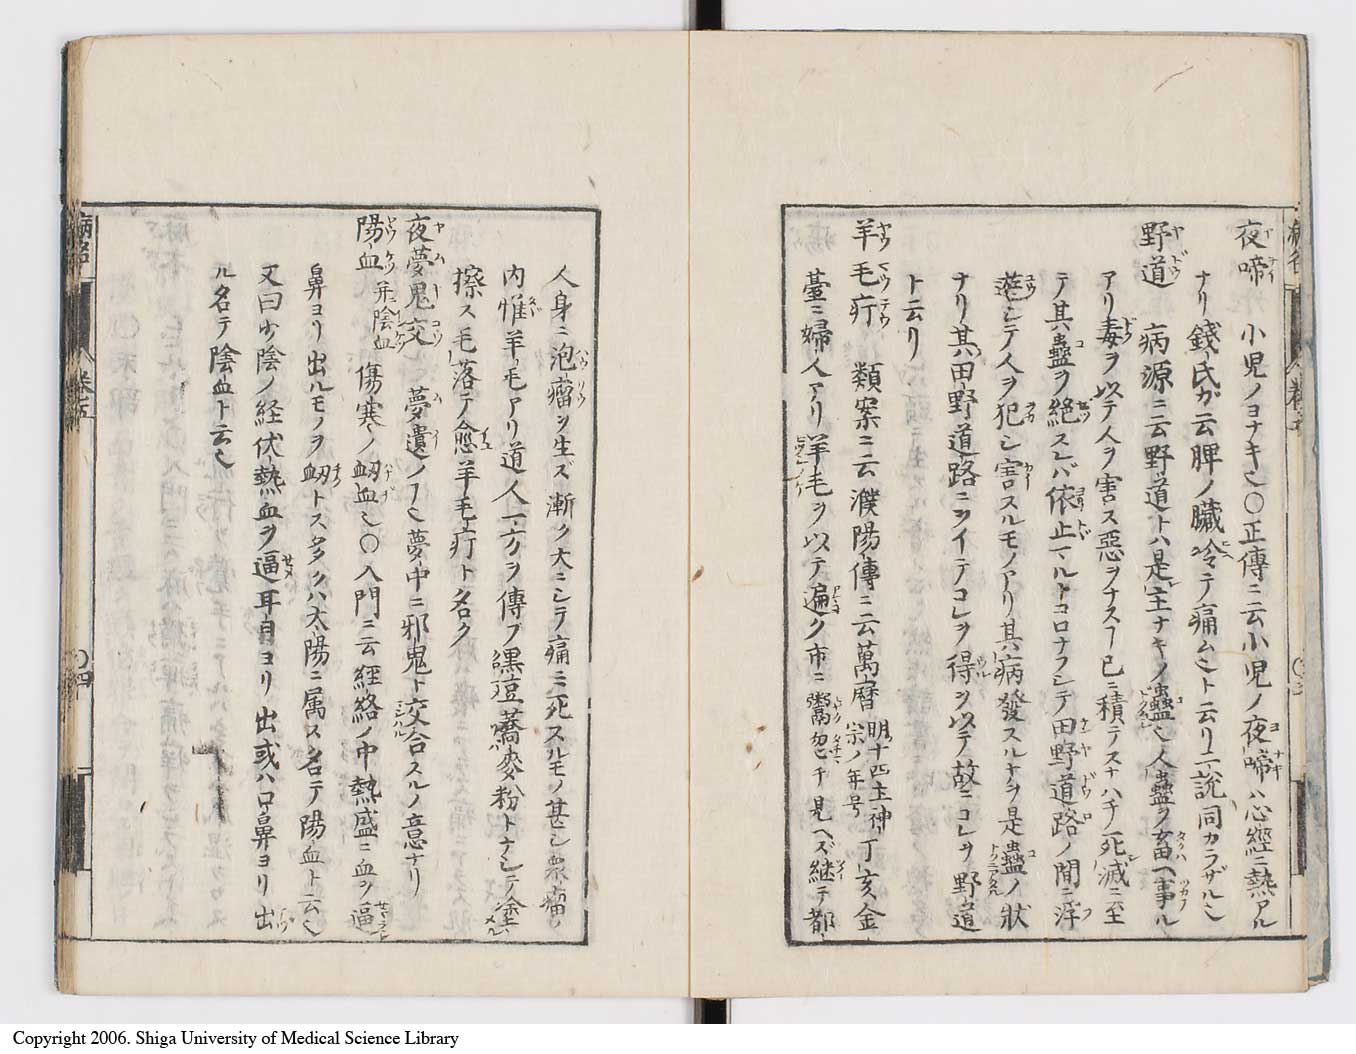 夜啼 小児ノヨナキ也〇正傳ニ云小児ノ夜啼ハ心經ニ熱アル
ナリ錢氏カ云脾ノ臓冷テ痛ムヿト云リ二說同カラザルヿ
野道 病源ニ云野道トハ是主ナキノ蠱也人蠱ヲ畜ヘ事ル
アリ毒ヲ以テ人ヲ害ス惡ヲナスヿ已ニ積テスナハチ死滅ニ至
テ其蠱ヲ絶スレバ依止マルトコロナフシテ田野道路ノ間ニ浮
遊シテ人ヲ犯シ害スルモノアリ其病發スルトキヲ是蠱ノ狀
ナリ其田野道路ニヲイテコレヲ得ヲ以テ故ニコレヲ野道
ト云リ
羊毛疔 類案ニ云濮陽傳ニ云萬曆明十四主神宗ノ年号丁亥金
臺ニ婦人アリ羊毛ヲ以テ遍ク市ニ鬻忽チ見ヘズ継テ都
人身ニ泡瘤ヲ生ズ漸ク大ニシテ痛ニ死スルモノ甚シ衆瘤ノ
内惟羊ノ毛アリ道人一方ヲ傳フ黒豆蕎麥粉トナシテ塗
擦ス毛落テ愈羊毛疔ト名ク
夜夢鬼交 夢遺ノヿ也夢中ニ邪鬼ト交合スルノ意ナリ
陽血 并陰血 傷寒ノ衂血也〇入門ニ云經絡ノ中熱盛ニ血ヲ逼
鼻ヨリ出ルモノヲ衂トス多クハ太陽ニ属ス名テ陽血ト云也
又曰少陰ノ経伏熱血ヲ逼耳目ヨリ出或ハ口鼻ヨリ出
ル名テ陰血ト云也
Copyright 2006. Shiga University of Medical Science Library